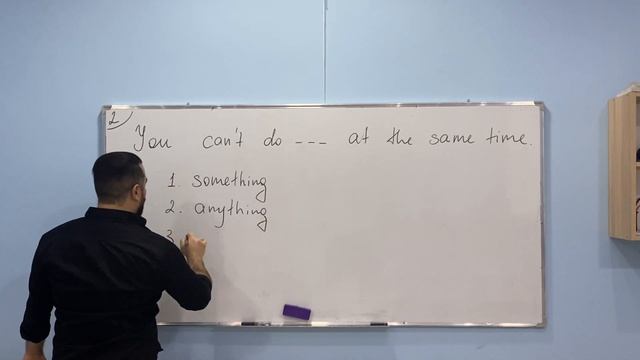 2
You can't do --- at the same time.
1. something
2. anything
3